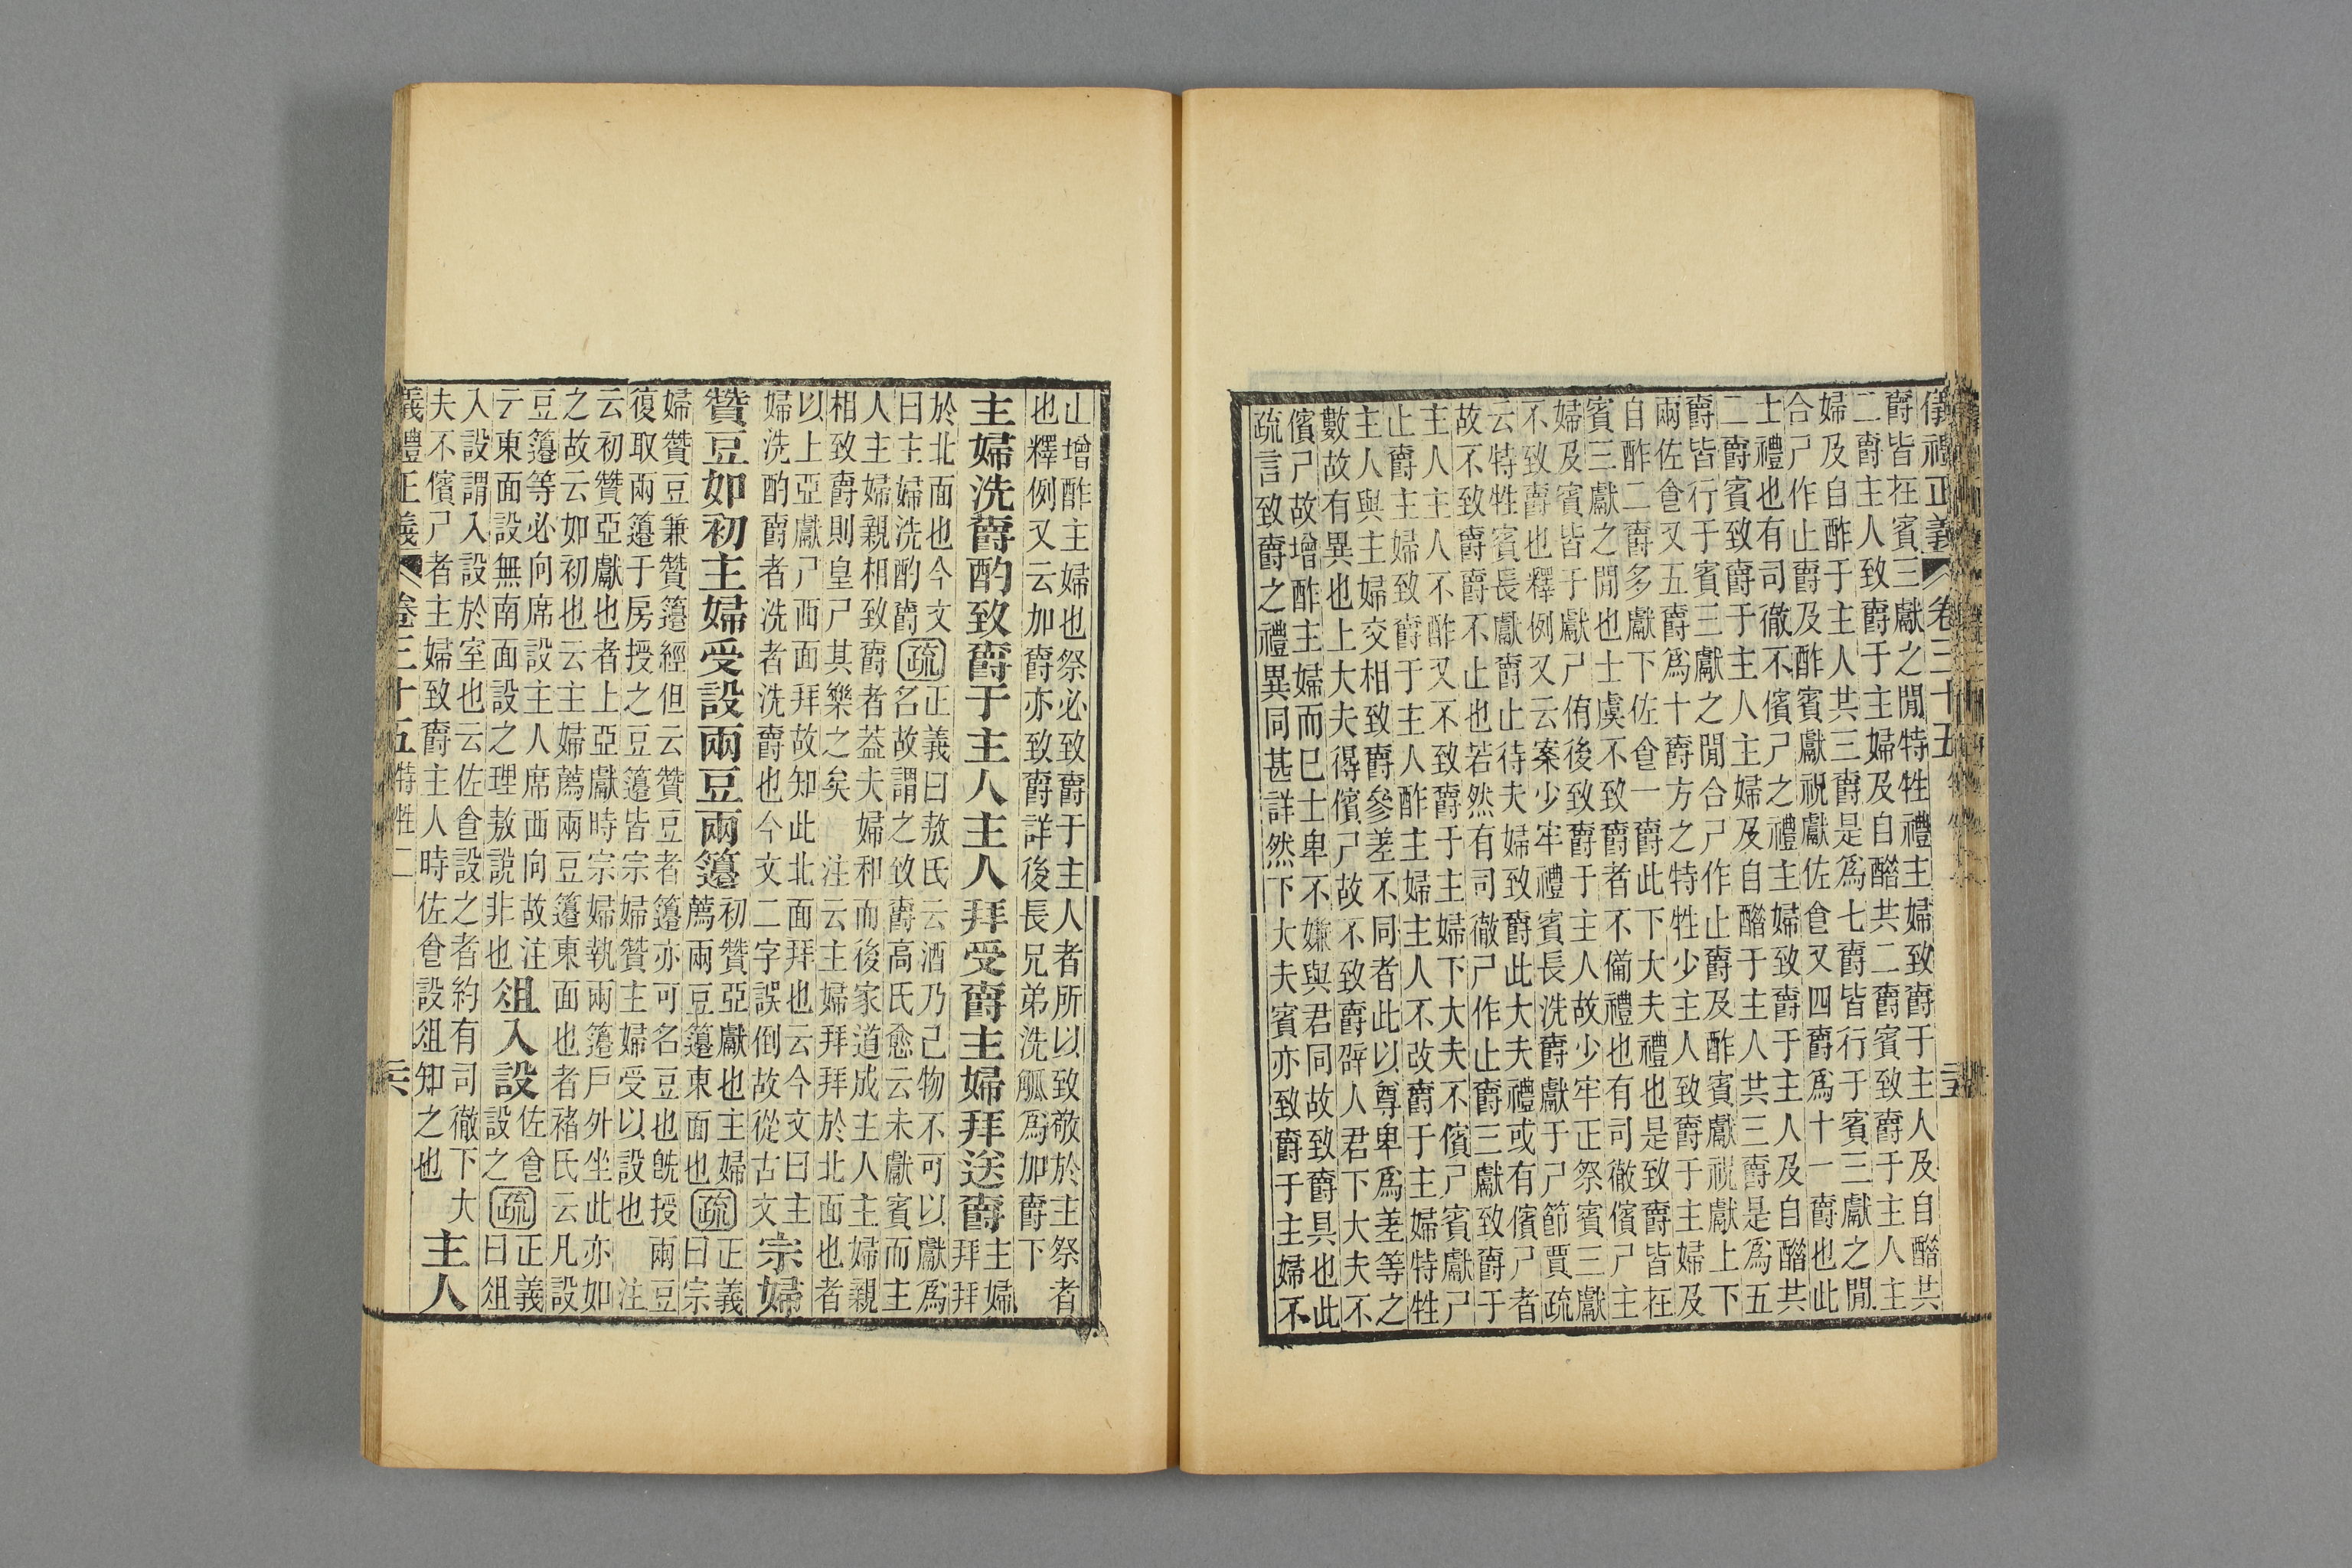 儀禮正義 卷三十五
爵皆在賓三獻之閒特牲禮主婦致爵于主人及自醋共
二爵主人致爵于主婦及自醋共二爵賓致爵于主人主
婦及自酢于主人共三爵是爲七爵皆行于賓三獻之閒
合尸作止爵及酢賓獻祝獻佐食又四爵爲十一爵也此
士禮也有司徹不儐尸之禮主婦致爵于主人及自醋共
二爵賓致爵于主人主婦及自醋于主人共三爵是爲五
爵皆行于賓三獻之閒合尸作止爵及酢賓獻祝獻上下
兩佐食又五爵爲十爵方之特牲少主人致爵于主婦及
自酢二爵多獻下佐食一爵此下大夫禮也是致爵皆在
賓三獻之閒也士虞不致爵者不備禮也有司徹儐尸主
婦及賓皆于獻尸侑後致爵于主人故少牢正祭賓三獻
不致爵也釋例又云案少牢禮賓長洗爵獻于尸節賈疏
云特牲賓長獻爵止待夫婦致爵此大夫禮或有儐尸者
故不致爵爵不止也若然有司徹尸作止爵三獻致爵于
主人主人不酢又不致爵于主婦下大夫不儐尸賓獻尸
止爵主婦致爵于主人酢主婦主人不改爵于主婦特牲
主人與主婦交相致爵參差不同者此以尊卑爲差等之
數故有異也上大夫得儐尸故不致爵辟人君下大夫不
儐尸故增酢主婦而已士卑不嫌與君同故致爵具也此
疏言致爵之禮異同甚詳然下大夫賓亦致爵于主婦不
止增酢主婦也祭必致爵于主人者所以致敬於主祭者
也釋例又云加爵亦致爵詳後長兄弟洗觚爲加爵下
主婦洗爵酌致爵于主人主人拜受爵主婦拜送爵主婦拜拜
於北面也今文曰主婦洗酌爵疏正義曰敖氏云酒乃己物不可以獻爲
名故謂之致爵高氏愈云未獻賓而主
人主婦親相致爵者葢夫婦和而後家道成主人主婦親
相致爵則皇尸其樂之矣 注云主婦拜拜於北面也者
以上亞獻尸西面拜故知此北面拜也云今文曰主
婦洗酌爵者洗者洗爵也今文二字誤倒故從古文宗婦
贊豆如初主婦受設兩豆兩籩初贊亞獻也主婦薦兩豆籩東面也疏正義曰宗
婦贊豆兼贊籩經但云贊豆者籩亦可名豆也旣授兩豆
復取兩籩于房授之豆籩皆宗婦贊主婦受以設也 注
云初贊亞獻也者上亞獻時宗婦執兩籩戶外坐此亦如
之故云如初也云主婦薦兩豆籩東面也者褚氏云凡設
豆籩等必向席設主人席西向故注
云東面設無南面設之理敖說非也俎入設佐食設之疏正義曰俎
入設謂入設於室也云佐食設之者約有司徹下大
夫不儐尸者主婦致爵主人時佐食設俎知之也主人
義禮正義 卷三十五 特牲二